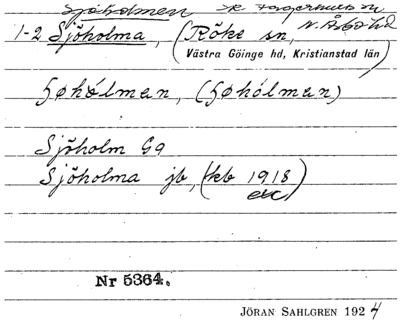 Sjöholmen sk Fagerhults sn
N. Åsbo hd
1-2 Sjöholma, (Röke sn,
Västra Göinge hd, Kristianstad län)
ʃøhólman, (ʃøhólman)
Sjöholm Gg
Sjöholma jb, (kb 1918
etc)
Nr 5364.
JÖRAN SAHLGREN 1924